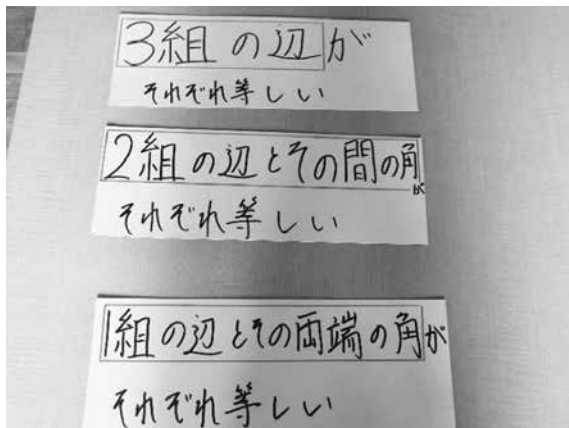 3組の辺が
それぞれ等しい
2組の辺とその間の角が
それぞれ等しい
1組の辺とその両端の角が
それぞれ等しい